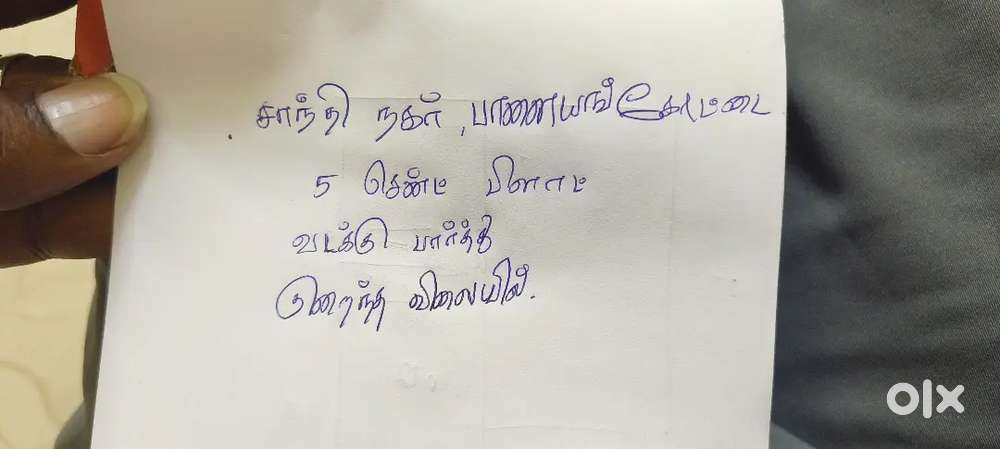 சாந்தி நகர், பாளையங்கோட்டை
5 செண்ட் பிளாட்
வடக்கு பார்த்த
குறைந்த விலையில்.
olx